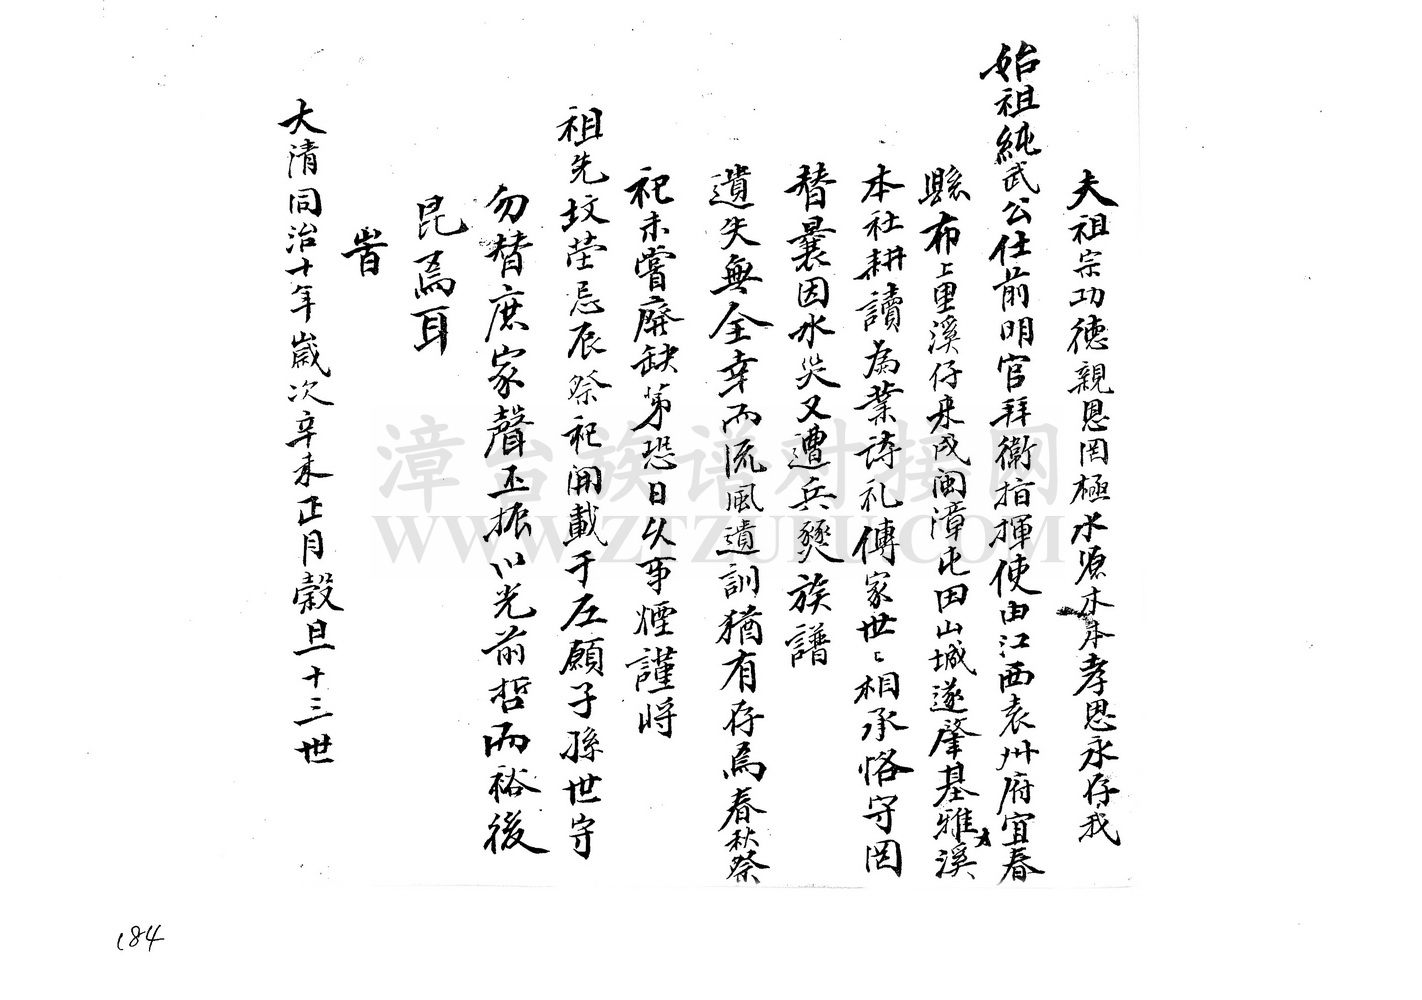 夫祖宗功德親恩罔極水源木本孝思永存我
始祖純武公仕前明官拜衛指揮使由江西袁州府宜春
縣布上里溪仔來戍閩漳屯田山城遂肇基雅溪
本社耕讀為業詩礼傳家世〻相承恪守罔
替曩因水災又遭兵燹族譜
遺失無全幸而流風遺訓猶有存焉春秋祭
祀未嘗廢缺第恐日久事煙謹將
祖先坟塋忌辰祭祀開載于左願子孫世守
勿替庶家聲丕振以光前哲而裕後
昆焉耳
旹
大清同治十年歲次辛未正月穀旦十三世
漳台族谱对接网
WWW.ZTZUPU.COM
184